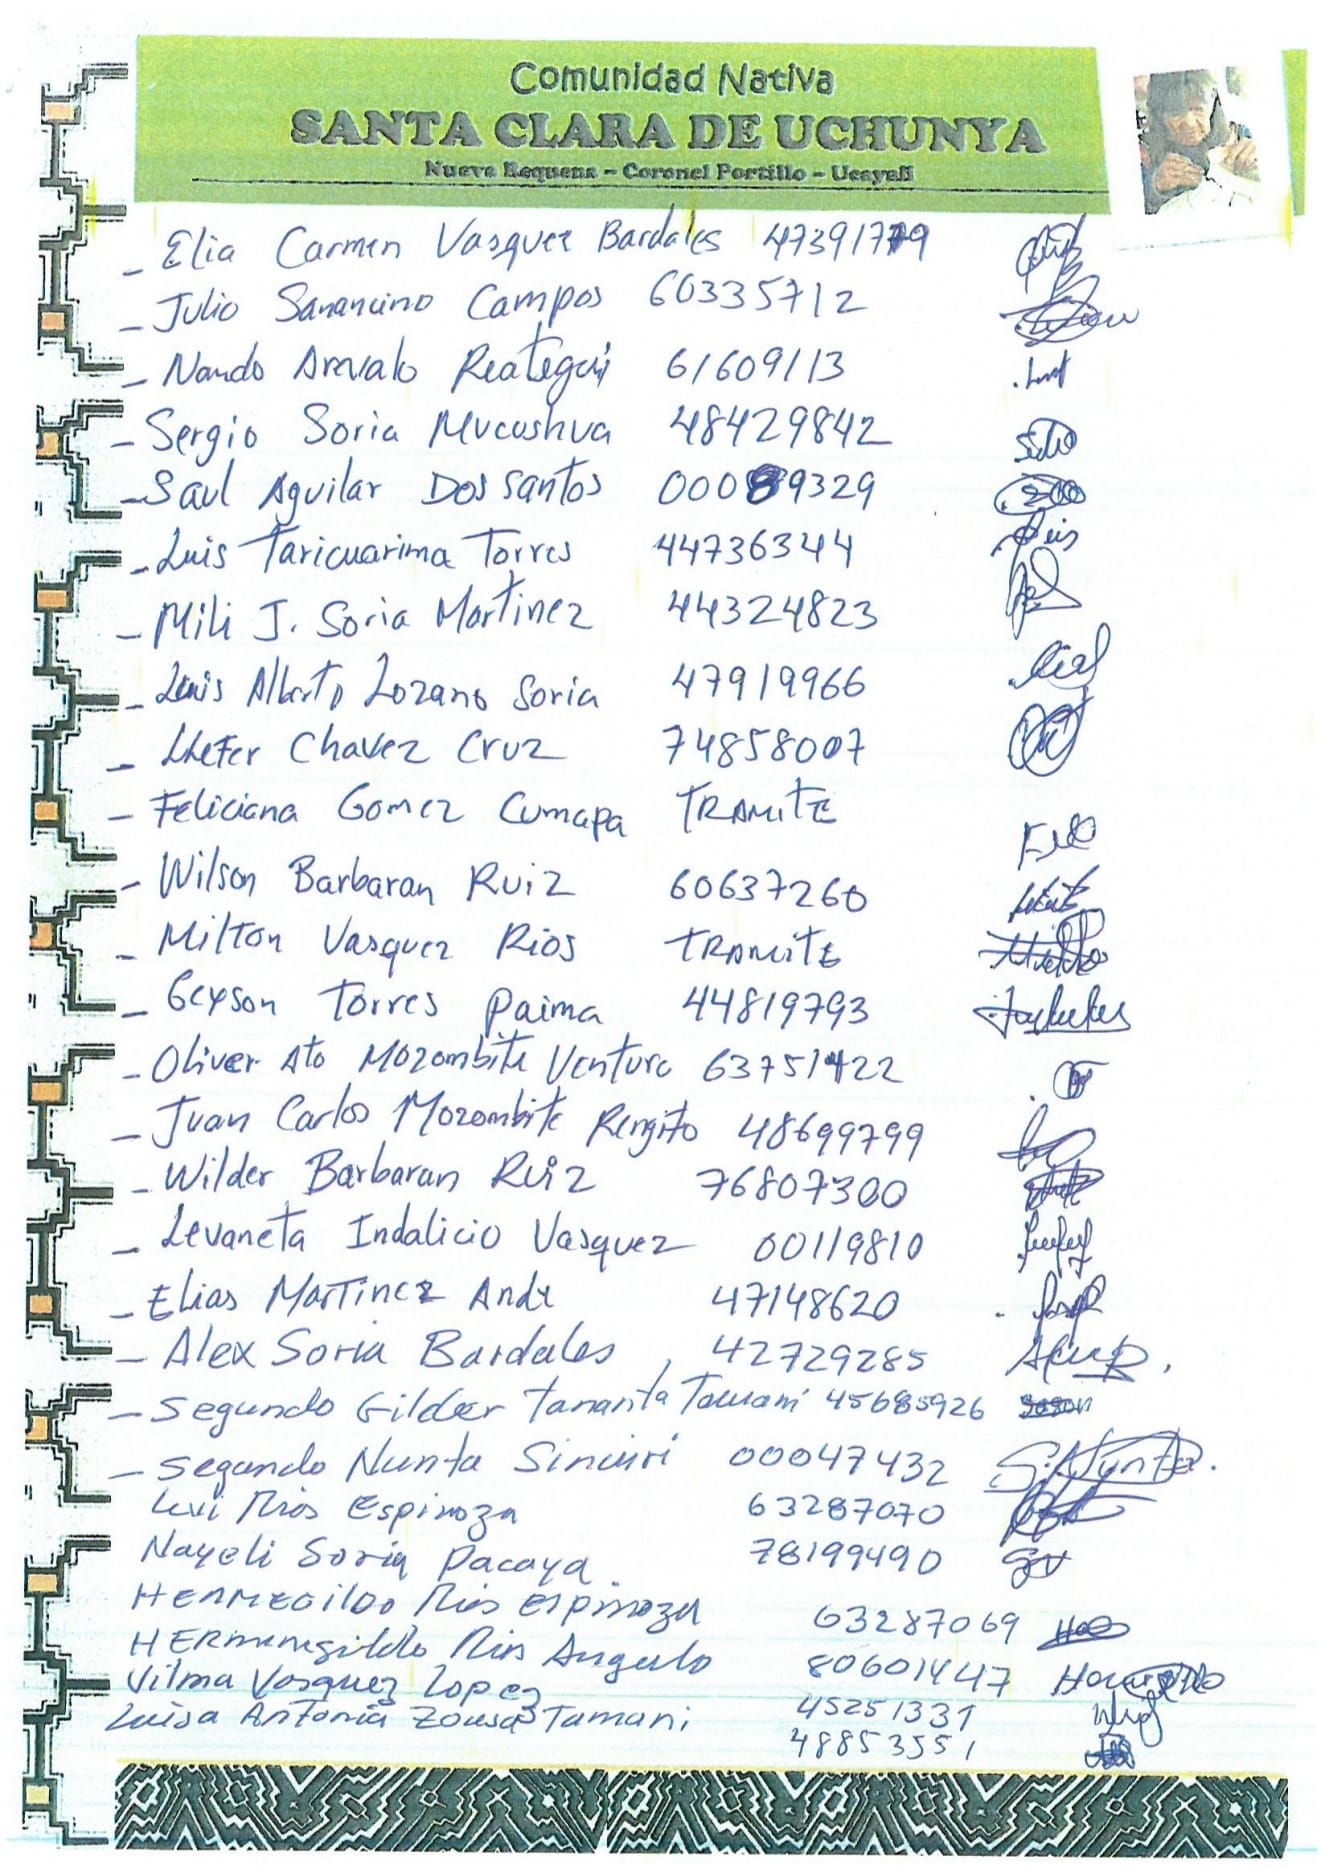 Comunidad Nativa
SANTA CLARA DE UCHUNYA
Nueva Requena - Coronel Portillo - Ucayali
- Elia Carmen Vasquez Bardales 47391779
- Julio Sanancino Campos 60335712
- Nando Arevalo Reategui 61609113
- Sergio Soria Mucushua 48429842
- Saul Aguilar Dos Santos 00089329
- Luis Taricuarima Torres 44736344
- Mili J. Soria Martinez 44324823
- Luis Alberto Lozano Soria 47919966
- Lhefer Chavez Cruz 74858007
- Feliciana Gomez Cumapa TRAMITE
- Wilson Barbaran Ruiz 60637260
- Milton Vasquez Rios TRAMITE
- Geyson Torres Paima 44819793
- Oliver Ato Mozombite Ventura 63751422
- Juan Carlos Mozombite Rengifo 48699799
- Wilder Barbaran Ruiz 76807300
- Levaneta Indalicio Vasquez 00119810
- Elias Martinez Andi 47148620
- Alex Soria Bardales, 42729285
- Segundo Gilder Tananta Tamani 45685926
- Segundo Nunta Sinuiri 00047432 S. Nunta.
Luis Rios Espinoza 63287070
Nayeli Soria Pacaya 78199490
HERMEGILDO Rios Espinoza 63287069
HERmenegildo Rios Angulo 80601447
Vilma Vasquez Lopez 45251331
Luisa Antonia Zousa Tamani 48853551